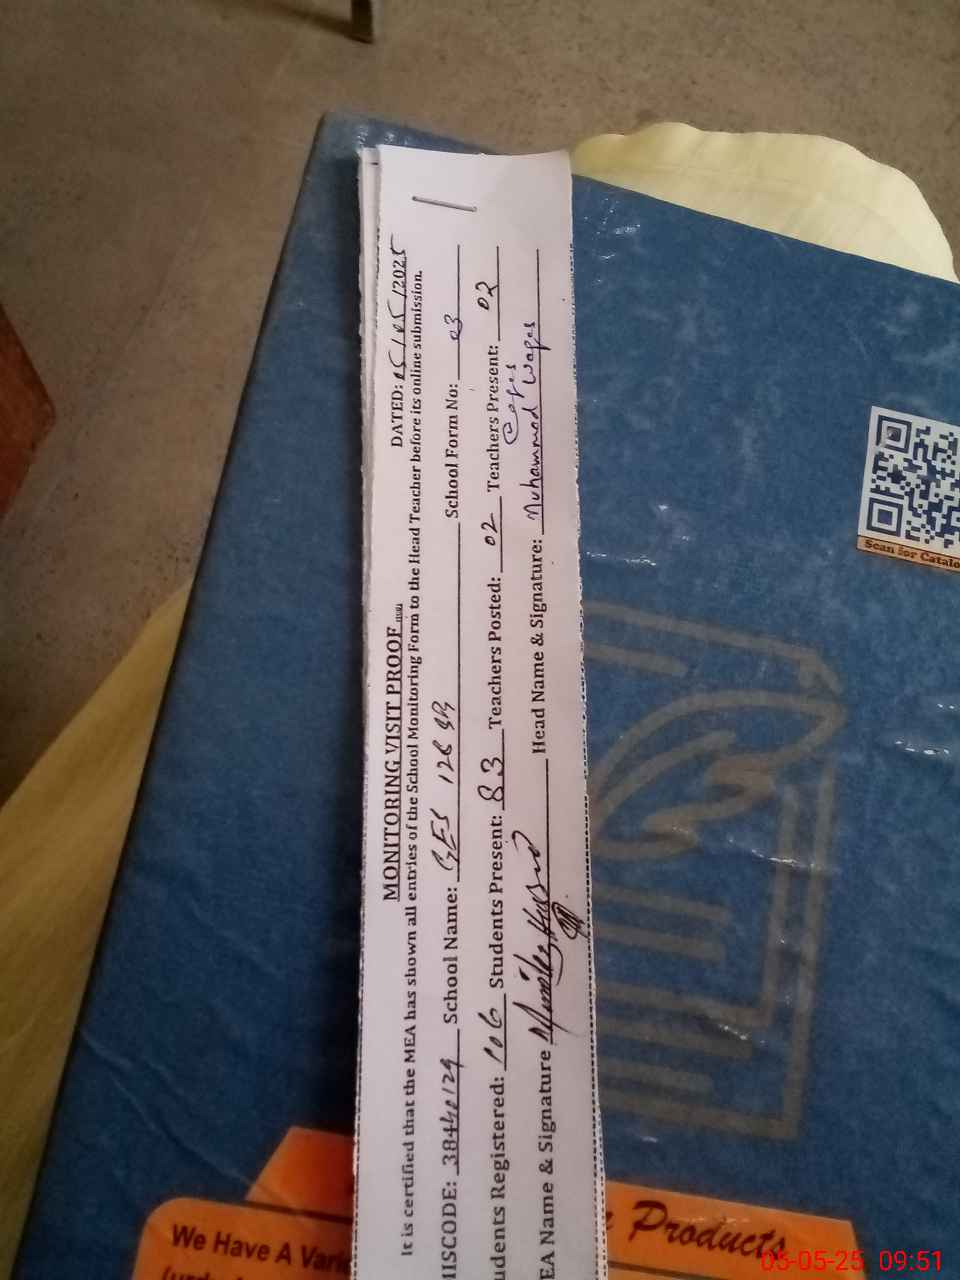 MONITORING VISIT PROOF
DATED: 05/05/2025
It is certified that the MEA has shown all entries of the School Monitoring Form to the Head Teacher before its online submission.
IISCODE: 38440129 School Name: GES 126 SB School Form No: 03
udents Registered: 106 Students Present: 83 Teachers Posted: 02 Teachers Present: 02
EA Name & Signature Head Name & Signature: Muhammad Waqas
Scan for Catalo
We Have A Vari
Products
05-05-25 09:51